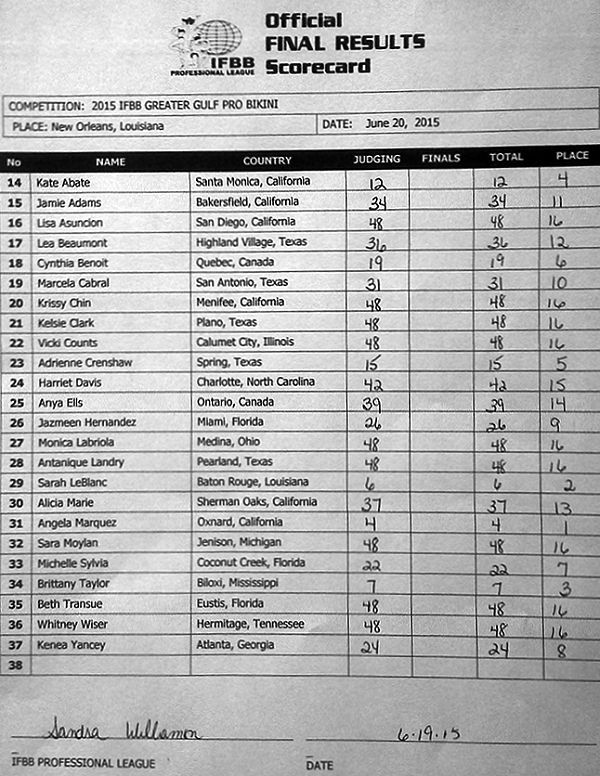 Official
FINAL RESULTS
Scorecard
IFBB
PROFESSIONAL LEAGUE
COMPETITION: 2015 IFBB GREATER GULF PRO BIKINI
PLACE: New Orleans, Louisiana DATE: June 20, 2015
No NAME COUNTRY JUDGING FINALS TOTAL PLACE
14 Kate Abate Santa Monica, California 12 12 4
15 Jamie Adams Bakersfield, California 34 34 11
16 Lisa Asuncion San Diego, California 48 48 16
17 Lea Beaumont Highland Village, Texas 36 36 12
18 Cynthia Benoit Quebec, Canada 19 19 6
19 Marcela Cabral San Antonio, Texas 31 31 10
20 Krissy Chin Menifee, California 48 48 16
21 Kelsie Clark Plano, Texas 48 48 16
22 Vicki Counts Calumet City, Illinois 48 48 16
23 Adrienne Crenshaw Spring, Texas 15 15 5
24 Harriet Davis Charlotte, North Carolina 42 42 15
25 Anya Ells Ontario, Canada 39 39 14
26 Jazmeen Hernandez Miami, Florida 26 26 9
27 Monica Labriola Medina, Ohio 48 48 16
28 Antanique Landry Pearland, Texas 48 48 16
29 Sarah LeBlanc Baton Rouge, Louisiana 6 6 2
30 Alicia Marie Sherman Oaks, California 37 37 13
31 Angela Marquez Oxnard, California 4 4 1
32 Sara Moylan Jenison, Michigan 48 48 16
33 Michelle Sylvia Coconut Creek, Florida 22 22 7
34 Brittany Taylor Biloxi, Mississippi 7 7 3
35 Beth Transue Eustis, Florida 48 48 16
36 Whitney Wiser Hermitage, Tennessee 48 48 16
37 Kenea Yancey Atlanta, Georgia 24 24 8
38
Sandra Williamson 6-19-15
IFBB PROFESSIONAL LEAGUE DATE